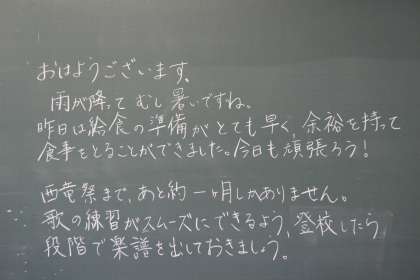 おはようございます。
雨が降って むし暑いですね。
昨日は給食の準備がとても早く、余裕を持って
食事をとることができました。今日も頑張ろう!
西竜祭まで、あと約一ヶ月しかありません。
歌の練習がスムーズにできるよう、登校したら
段階で楽譜を出しておきましょう。